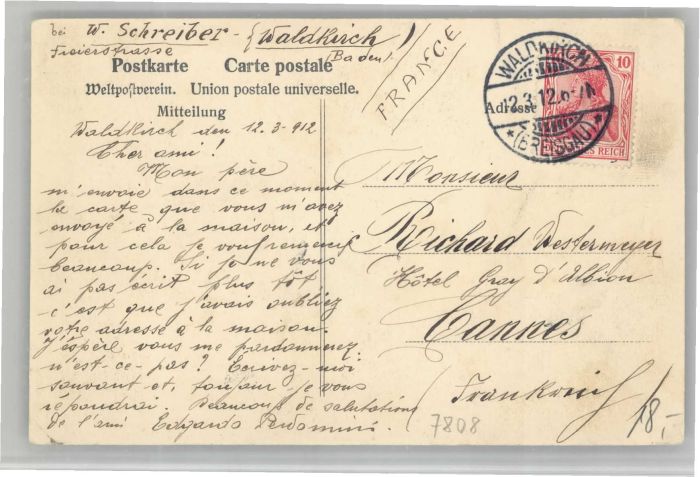 bei W. Schreiber - (Waldkirch)
Freierstrasse (Baden)
FRANCE
Postkarte Carte postale
Weltpostverein. Union postale universelle.
Mitteilung
Adresse
WALDKIRCH
12.3.12.6-7N.
*(BREISGAU)*
10
REICH
Waldkirch den 12.3-912
Cher ami!
Mon père
m'envoie dans ce moment
la carte que vous m'avez
envoyé à la maison, et
pour cela je vous remercie
beaucoup. Si je ne vous
ai pas écrit plus tôt
c'est que j'avais oubliez
votre adresse à la maison.
J'espère vous me pardonnerez;
n'est-ce-pas? Ecrivez-moi
souvant et, toujour je vous
répondrai. Beaucoup de salutations
de l'ami Edgardo
Monsieur
Richard Westermeyer
Hôtel Gray d'Albion
Cannes
Frankreich
7808
18,-